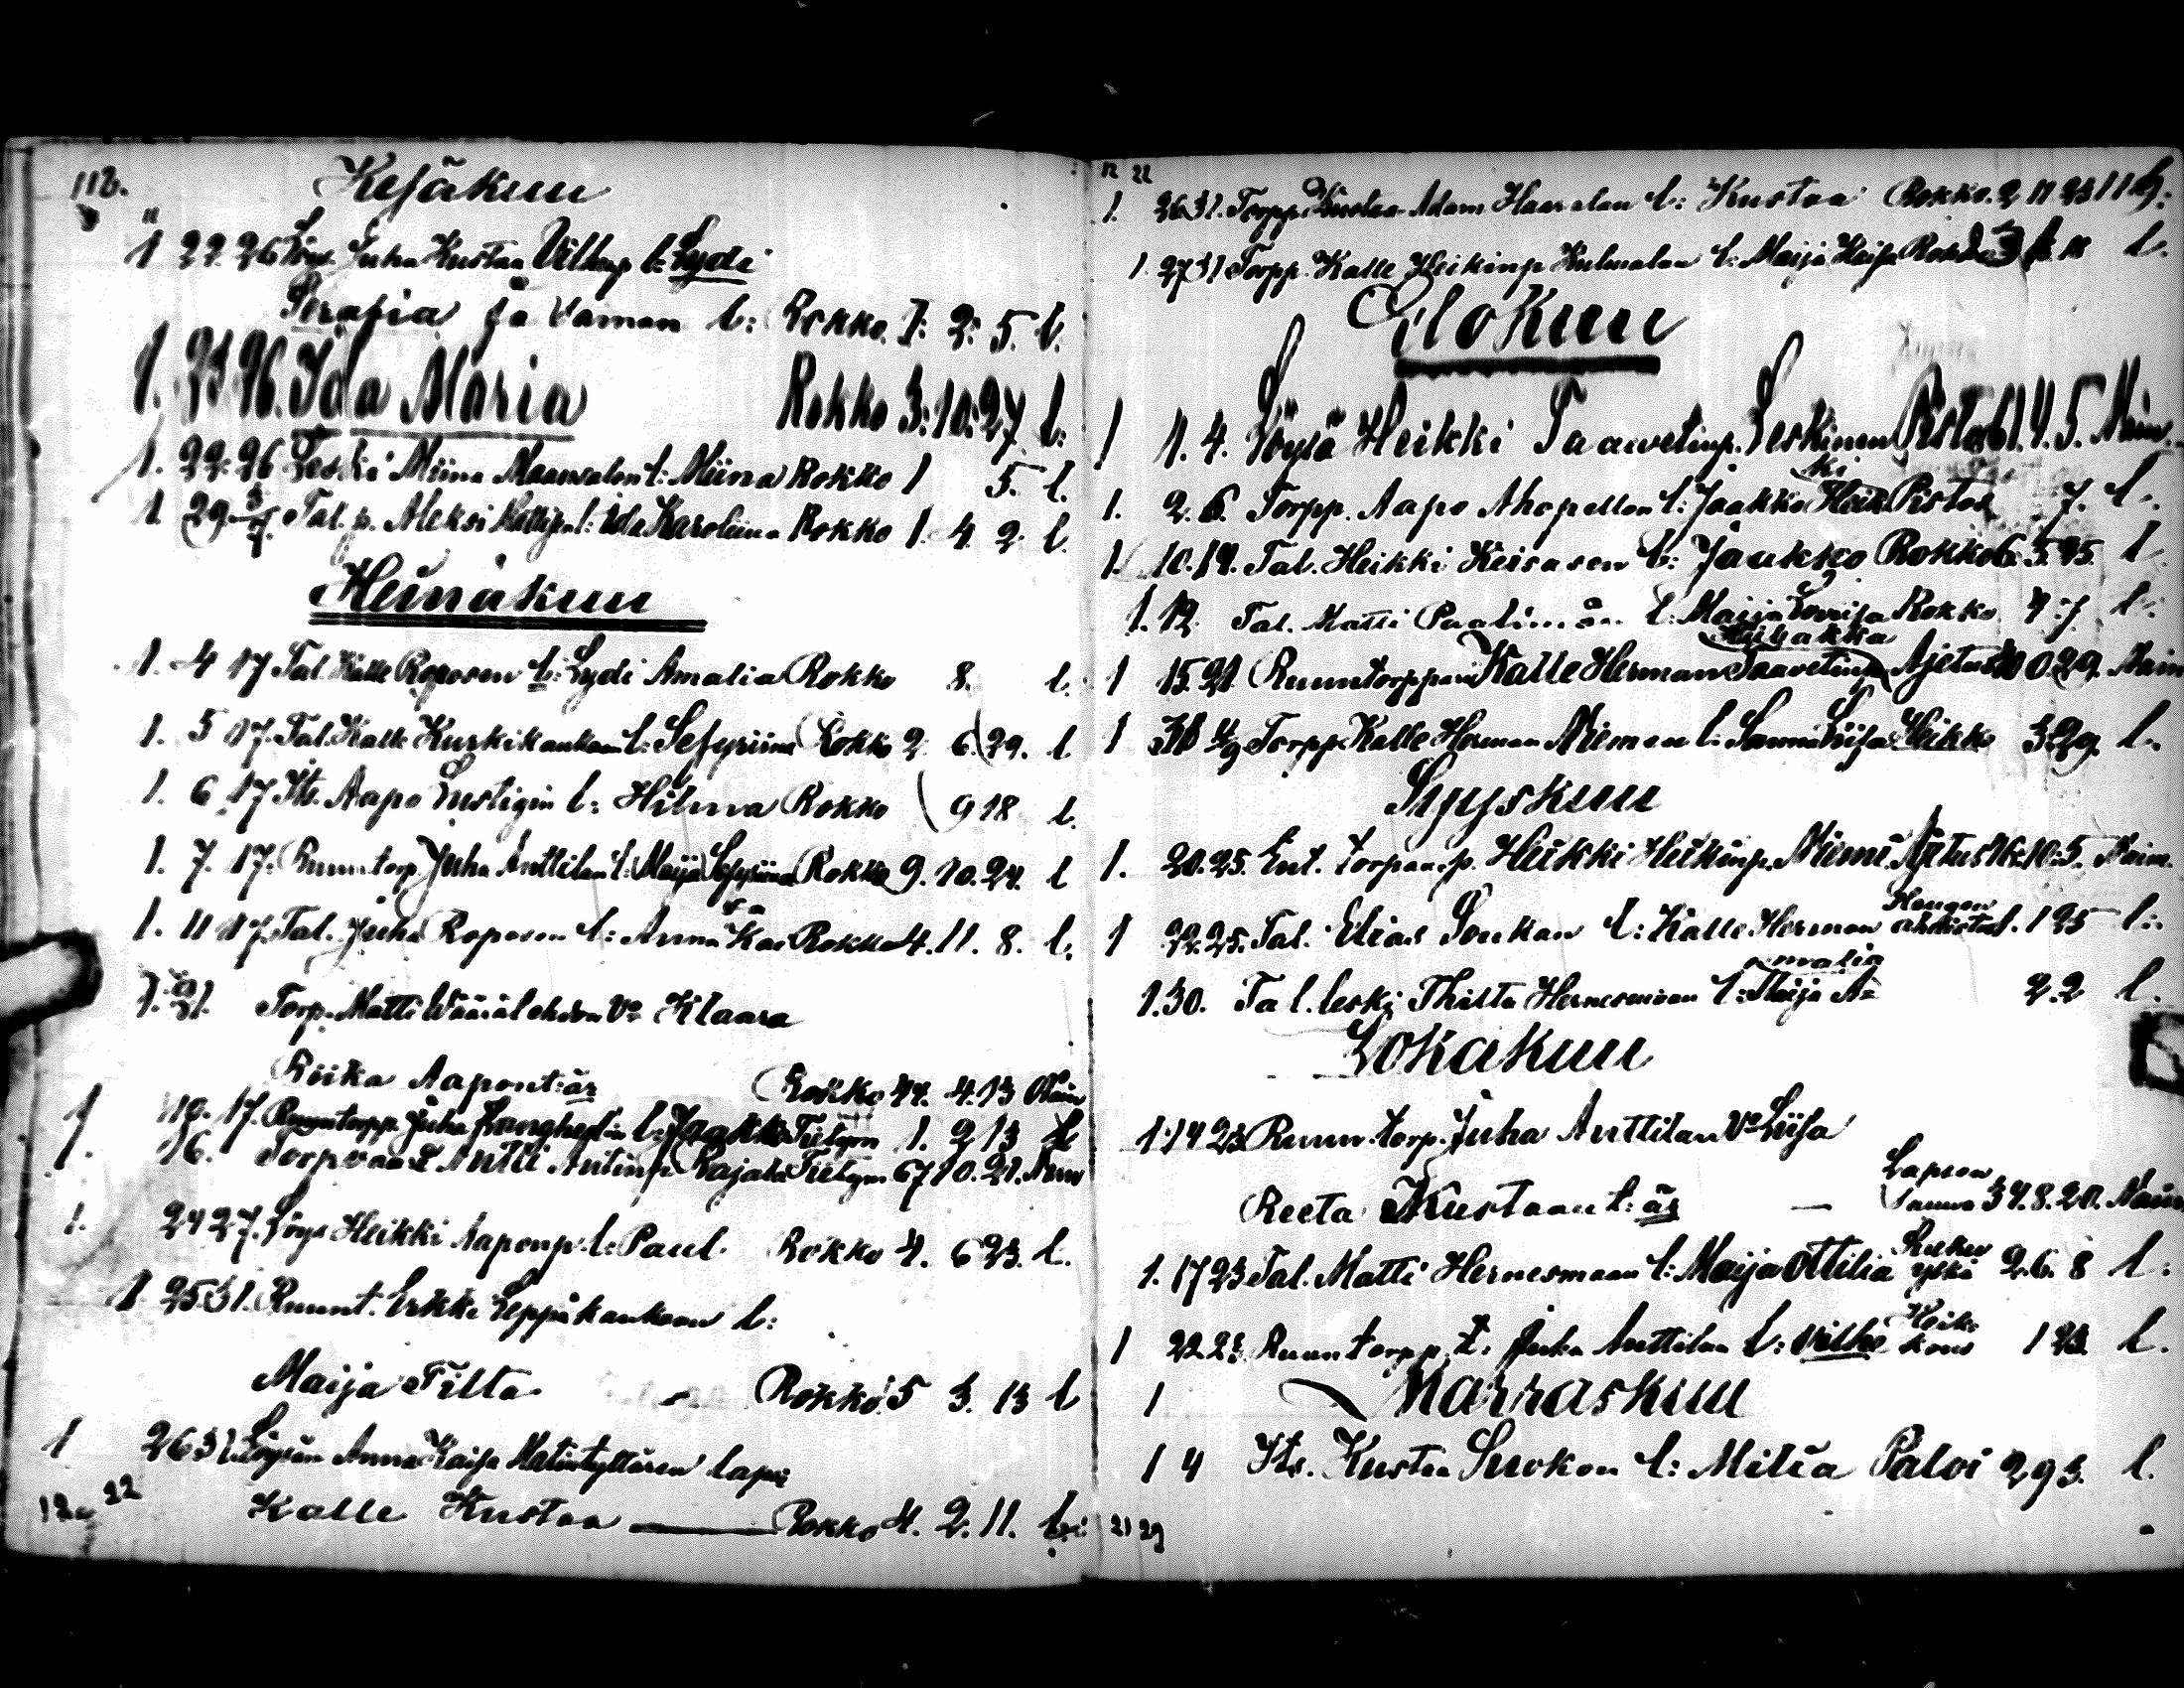 112.
Kesäkuu
1 22. 26 Löys. Juha Kustaa Villenp l: Lydi
Serafia ja Vaman l: Rokko. 1: 2: 5. l.
1. 23 26. Ida Maria Rokko 3: 10: 27. l:
1. 22. 26 Leski Miina l: Miina Rokko 1 5. l.
1. 29 Tal. p. Aleksi l: Ida Karoliina Rokko 1. 4. 2. l.
Heinäkuu
1. 4 17 Tal. Kalle Roposen l: Lydi Amalia Rokko 8. l.
1. 5 17. Tal. Kalle Kurkikankaan l: Sefyriina Rokko 2. 6. 29. l
1. 6 17 Its. Aapo Lustigin l: Hilma Rokko 9 18 l.
1. 7. 17. Ruuntorp. Juha Anttilan l: Maija Sefyriina Rokko 9. 10. 24. l
1. 11 17. Tal. Juha Roposen l: Anna Kai Rokko 4. 11. 8. l.
sa
Torp. Matti Väärälehdon Vo Klaara
Riika Aapont:är Rokko 44. 4. 13 Nain
1 10. 17. Ruuntorpp. Juha Langhedin l: Jaakko Tietym 1. 2 13 l
1. 16. Torpvaari Antti Antinp Rajala Tietym 67 10. 21. Nain
1. 24 27. Löys Heikki Aaponp. l: Paul. Rokko 4. 6 23. l.
1 25 31. Ruunt. Erkki Leppikankaan l:
Maija Tilta - Rokko 5 3. 13 l
1 26 31. Löysän Anna Kaisa Matintyttären lapsi
12 22 Kalle Kustaa — Rokko 4. 2. 11. l:
12 22
1. 26 31. Torpp. Kustaa Adam Haaralan l: Kustaa Rokko. 2 11 23
1. 27 31. Torpp. Kalle Heikinp Kulmalan l: Maija Kaisa Rokko l.
Elokuu
1 1. 4. Löysä Heikki Taavetinp. Leskinen Pistos 61. 4. 5. Nain.
ki
1. 2. 6. Torpp. Aapo Ahopellon l: Jaakko Heik Pistos 7. l.
1. 10. 14. Tal. Heikki Keisasen l: Jaakko Rokko 6. 5. 25. l
1. 12 Tal. Matti l: Maija Loviisa Rokko 4. 7 l.
1 15. 21. Ruuntorppari Kalle Herman Taavetinp Ajetus 0. 29. Nain
1 31 4/9 Torpp. Kalle Herman Niemen l: Sanna Liisa Heikk 3. 29. l.
Syyskuu
1. 20. 25. Ent. torpan p. Heikki Heikinp. Niemi Ajetus 76. 10. 5. Naim.
Hengen
1 22. 25. Tal. Elias Soukan l: Kalle Herman ahdistus 1. 1 25 l.
amalia
1. 30. Tal. leski Thilta Hernesmaan l: Maija A= 2. 2 l.
Lokakuu
1. 14 23 Ruun. torp. Juha Anttilan Vo Liisa
Lapsen
Reeta Kustaan t:är — Saunva 34. 8. 20. Nain
Kuku
1. 17 23 Tal. Matti Hernesmaan l: Maija Ottilia yskä 2. 6. 8 l.
Heik:
1 22. 23. Ruuntorpp. t. Juha Anttilan l: Vilhe kous 1 23. l.
1 Marraskuu
1 4 Its. Kustaa Suokon l: Milia Paloi 2 9 3. l.
21 29